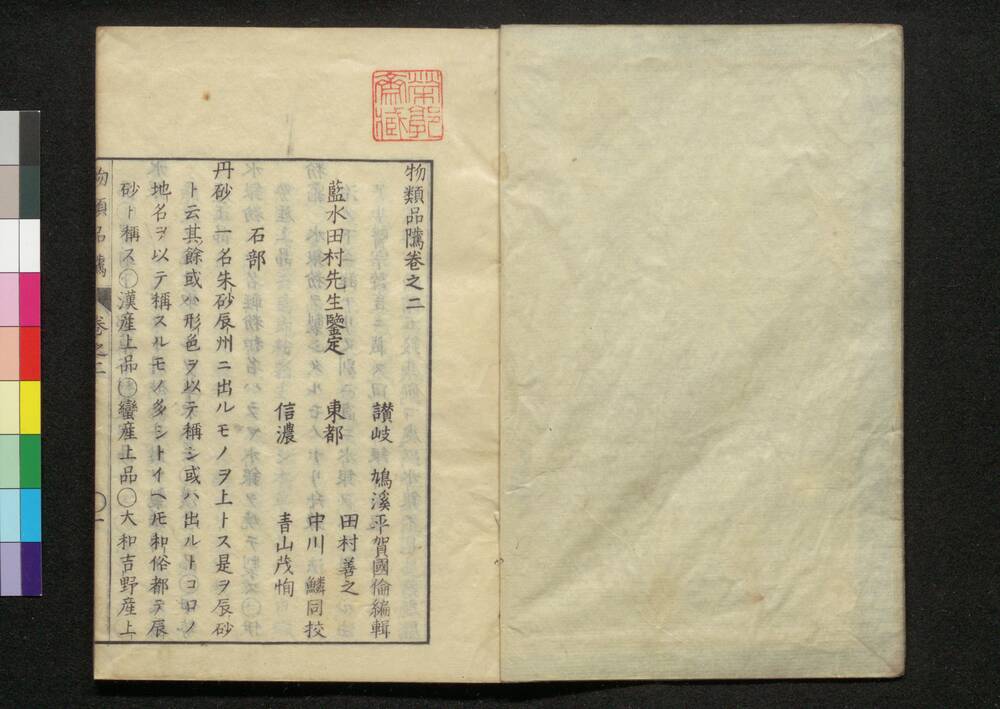 物類品隲卷之二
讃岐 鳩溪平賀國倫編輯
藍水田村先生鑒定 東都 田村善之
中川鱗同挍
信濃 青山茂恂
石部
丹砂 一名朱砂辰州ニ出ルモノヲ上トス是ヲ辰砂
ト云其餘或ハ形色ヲ以テ稱シ或ハ出ルトコロノ
地名ヲ以テ稱スルモノ多シトイヘ𪜈和俗都テ辰
砂ト稱ス○漢産上品○蠻産上品○大和吉野産上
物類品隲 卷之二 ○一